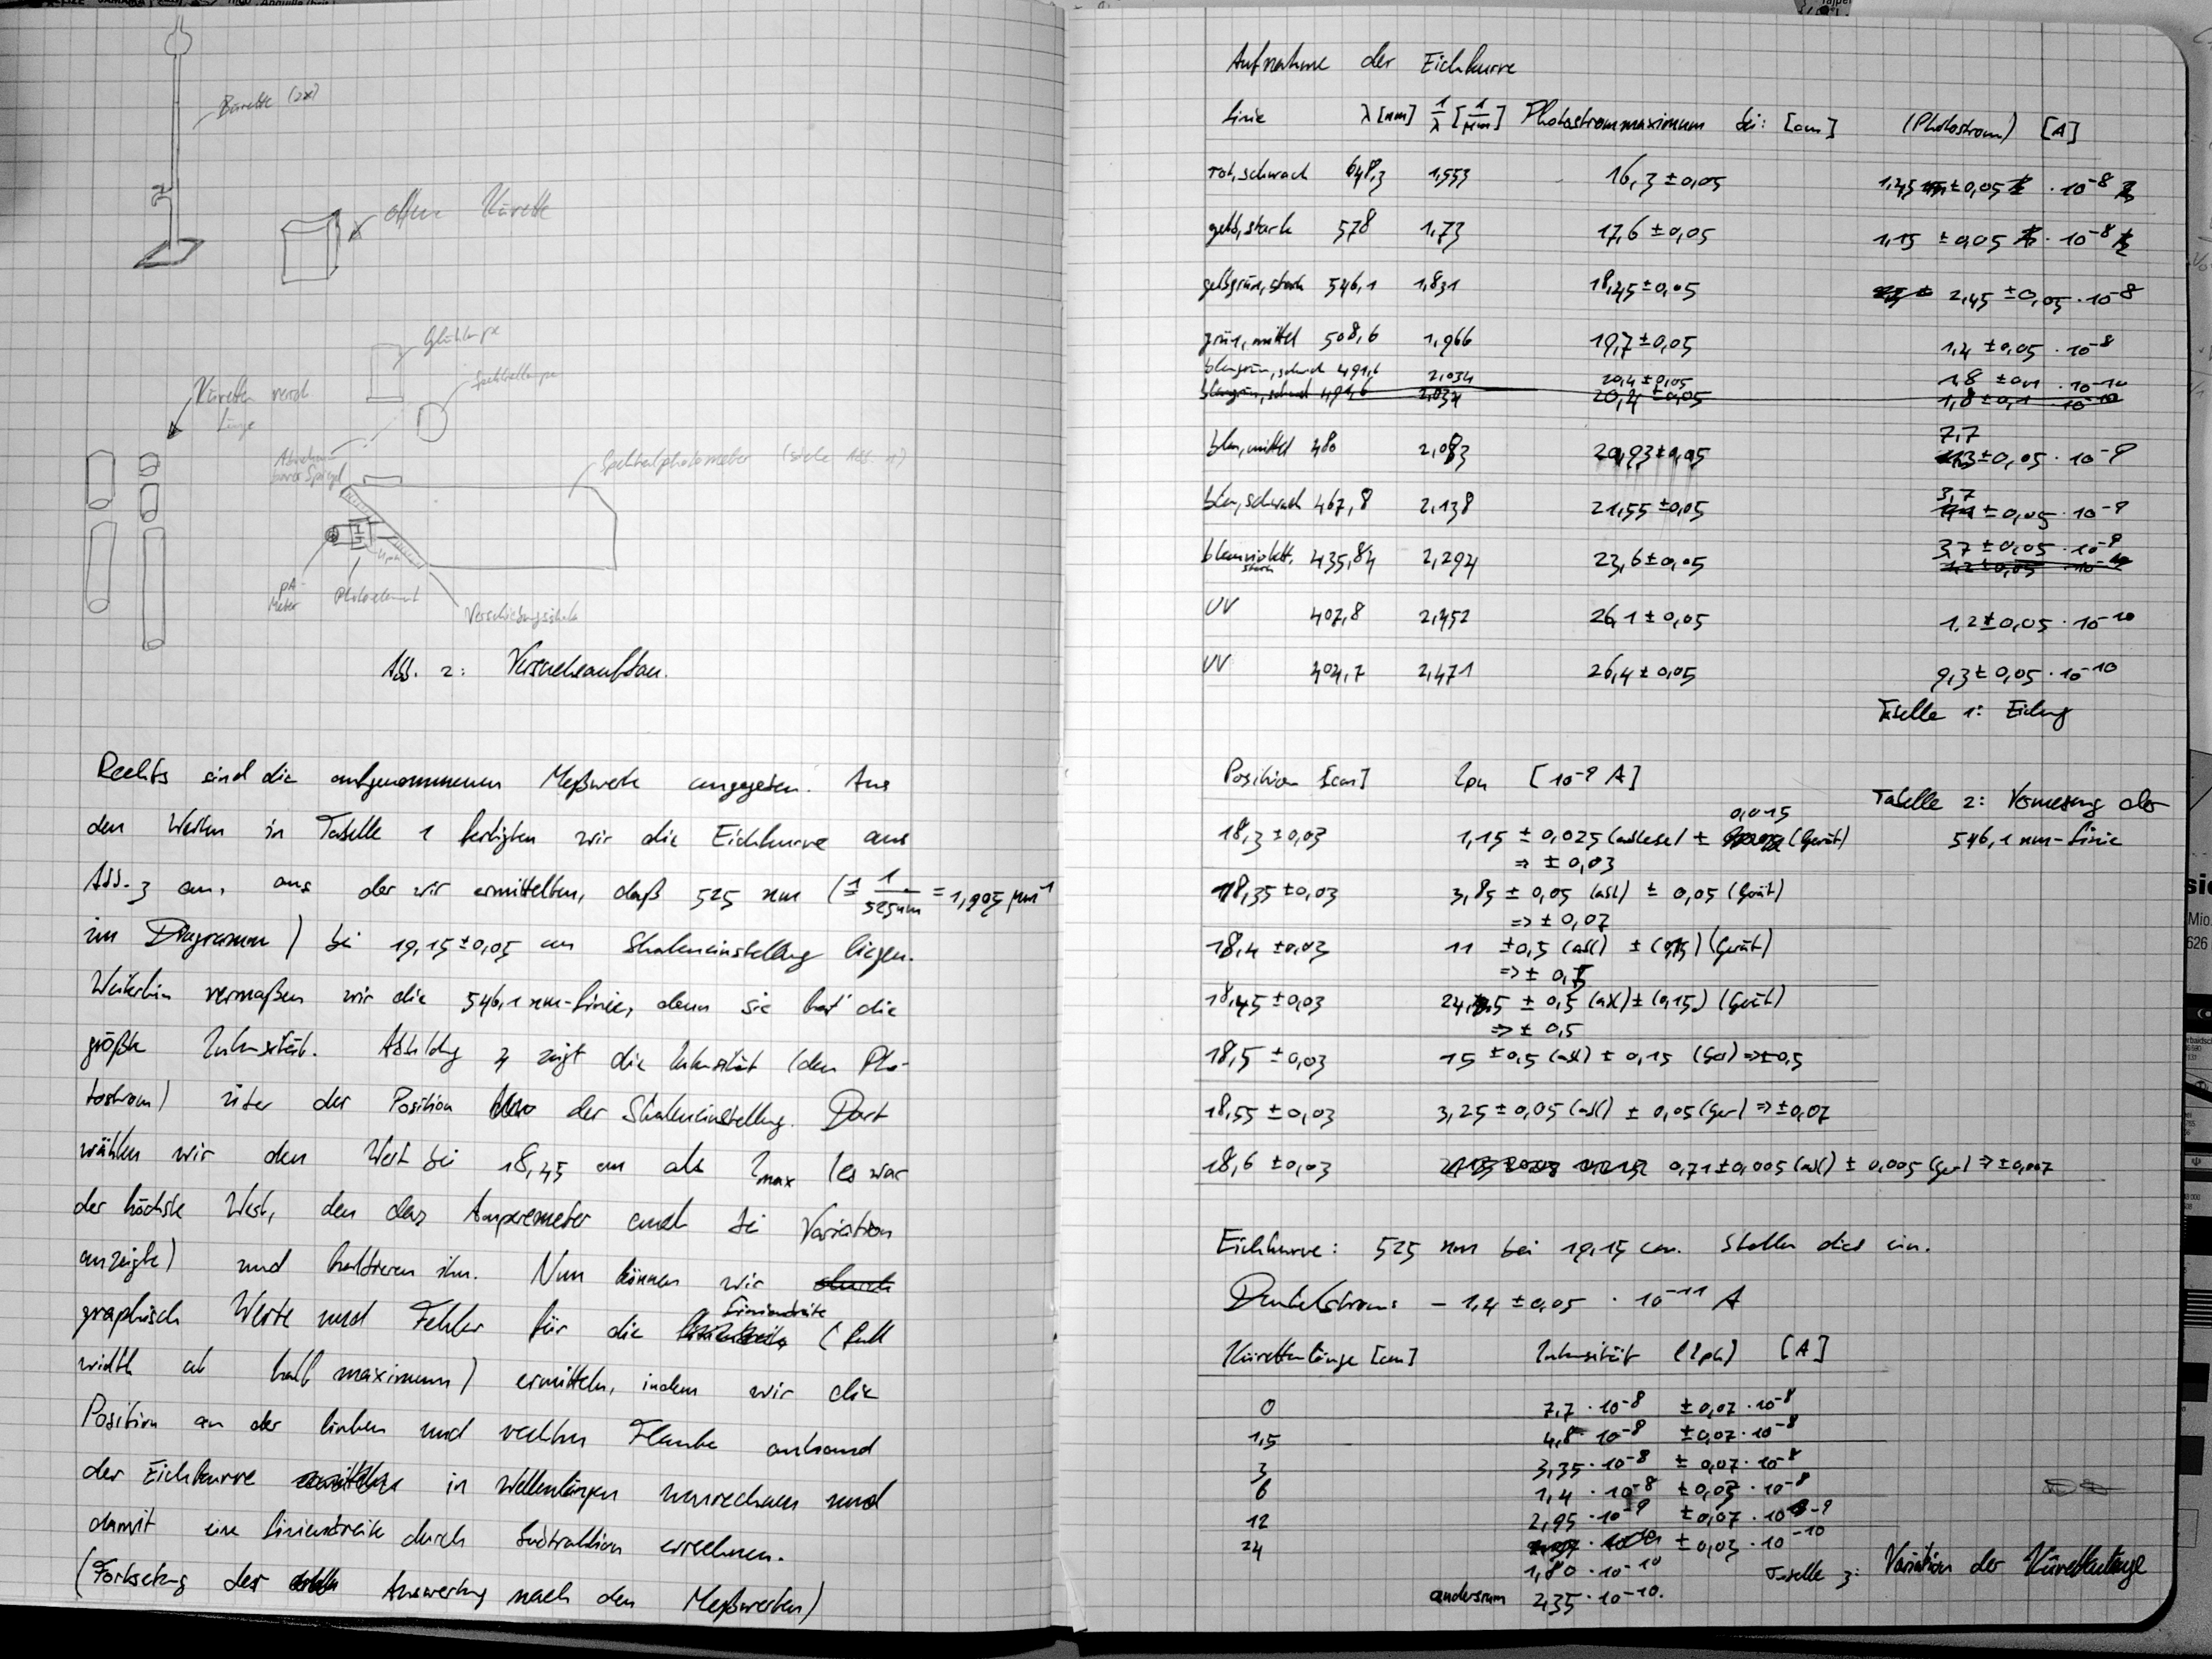 Bürette (2x)
offene Küvette
Glühlampe
Spektrallampe
Küvetten versch
Länge
Spektralphotometer (siehe Abb. 1)
pA-
Meter
Photoelement
Verschiebungsschale
Abb. 2: Versuchsaufbau.
Rechts sind die aufgenommenen Meßwerte angegeben. Aus
den Werten in Tabelle 1 fertigten wir die Eichkurve aus
Abb. 3 an, aus der wir ermittelten, daß 525 nm (≙ 1/525nm = 1,905 µm⁻¹
im Diagramm) bei 19,15±0,05 cm Skaleneinstellung liegen.
Weiterhin vermaßen wir die 546,1 nm-Linie, denn sie hat die
größte Intensität. Abbildg 4 zeigt die Intensität (den Pho-
tostrom) über der Position der Skaleneinstellung. Dort
wählen wir den Wert bei 18,45 cm als Imax (es war
der höchste Wert, den das Amperemeter auch bei Variation
anzeigte) und halbieren ihn. Nun können wir
graphisch Werte und Fehler für die Linienbreite (full
width at half maximum) ermitteln, indem wir die
Position an der linken und rechten Flanke anhand
der Eichkurve in Wellenlängen umrechnen und
damit eine Linienbreite durch Subtraktion errechnen.
(Fortsetzg der Auswertung nach den Meßwerten)
Aufnahme der Eichkurve
Linie λ [nm] 1/λ [1/µm] Photostrommaximum bei: [cm] (Photostrom) [A]
rot, schwach 648,3 1,553 16,3 ±0,05 1,45 ±0,05 · 10⁻⁸
gelb, stark 578 1,73 17,6 ±0,05 1,15 ±0,05 · 10⁻⁸
gelbgrün, stark 546,1 1,831 18,45±0,05 2,45 ±0,05 · 10⁻⁸
grün, mittel 508,6 1,966 19,7±0,05 1,4 ±0,05 · 10⁻⁸
blaugrün, schwach 491,6 2,034 20,4 ±0,05 1,8 ±0,1 · 10⁻¹⁰
blaugrün, schwach 491,6 2,034 20,4 ±0,05 1,8 ±0,1 · 10⁻¹⁰
blau, mittel 480 2,083 20,93±0,05 7,7 ±0,05 · 10⁻⁹
blau, schwach 467,8 2,138 21,55 ±0,05 3,7 ±0,05 · 10⁻⁹
blauviolett, stark 435,84 2,294 23,6±0,05 3,7 ±0,05 · 10⁻⁹
UV 407,8 2,452 26,1 ±0,05 1,2±0,05 · 10⁻¹⁰
UV 404,7 2,471 26,4±0,05 9,3±0,05 · 10⁻¹⁰
Tabelle 1: Eichung
Position [cm] Iph [10⁻⁹ A]
Tabelle 2: Vermessung der
546,1 nm-Linie
18,3 ±0,03 1,15 ± 0,025 (ablese) ± 0,015 (Gerät)
⇒ ± 0,03
18,35 ±0,03 3,85 ± 0,05 (abl) ± 0,05 (Gerät)
⇒ ± 0,07
18,4 ±0,03 11 ±0,5 (abl) ± (0,15) (Gerät)
⇒ ± 0,5
18,45 ±0,03 24,5 ± 0,5 (abl) ± (0,15) (Gerät)
⇒ ± 0,5
18,5 ±0,03 15 ±0,5 (abl) ± 0,15 (Ger) ⇒±0,5
18,55 ±0,03 3,25 ±0,05 (abl) ± 0,05 (Ger) ⇒ ±0,07
18,6 ±0,03 0,71±0,005 (abl) ± 0,005 (Ger) ⇒ ±0,007
Eichkurve: 525 nm bei 19,15 cm. Stellen dies ein.
Dunkelstrom: - 1,4 ±0,05 · 10⁻¹¹ A
Küvettenlänge [cm] Intensität (Iph) [A]
0 7,7 · 10⁻⁸ ±0,07 · 10⁻⁸
1,5 4,8 · 10⁻⁸ ±0,07 · 10⁻⁸
3 3,35 · 10⁻⁸ ± 0,07 · 10⁻⁸
6 1,4 · 10⁻⁸ ±0,07 · 10⁻⁸
12 2,95 · 10⁻⁹ ±0,07 · 10⁻⁹
24 ±0,03 · 10⁻¹⁰
1,80 · 10⁻¹⁰
andersrum 2,35 · 10⁻¹⁰.
Tabelle 3: Variation der Küvettenlänge